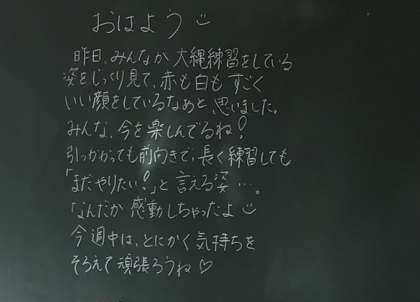 おはよう
昨日、みんなが大縄練習をしている
姿をじっくり見て、赤も白もすごく
いい顔をしているなぁと思いました。
みんな、今を楽しんでるね!
引っかかっても前向きで、長く練習しても
「まだやりたい!」と言える姿…。
なんだか感動しちゃったよ
今週中は、とにかく気持ちを
そろえて頑張ろうね♡